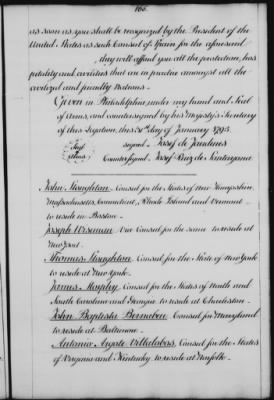 166.
as soon as you shall be recognized by the President of the
United States as such Consul of Spain for the aforesaid
, they will afford you all the protection, hos
pitality and civilities that are in practice amongst all the
civilized and friendly Nations.
Given in Philadelphia under my hand and Seal
of Arms, and countersigned by his Majesty's Secretary
of this Legation, this day of January 1795.
Seal of Arms
signed - Josef de Jaudenes
Countersigned - Josef Ruiz de Santayana
John Stoughton Consul for the States of New Hampshire,
Massachusetts, Connecticut, Rhode Island and Vermont
to reside in Boston.
Joseph Wiseman Vice Consul for the same to reside at
Newport.
Thomas Stoughton Consul for the State of New York
to reside at New York.
James Murphy, Consul for the States of North and
South Carolina and Georgia to reside at Charleston.
John Baptista Bernabeu Consul for Maryland
to reside at Baltimore.
Antonio Argote Villalobos, Consul for the States
of Virginia and Kentucky to reside at Norfolk.